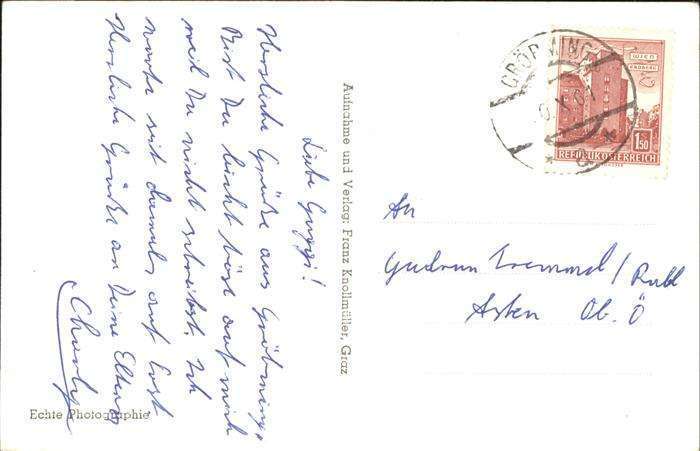 Liebe Guggi!
Herzliche Grüße aus Gröbming.
Bist Du leicht böse auf mich
weil Du nicht schreibst. Ich
warte seit damals auf Post
Herzliche Grüße an Deine Eltern
Charly
Echte Photographie
Aufnahme und Verlag: Franz Knollmüller, Graz
GRÖBMING
X. 61
WIEN
ERDBERG
1.50
REPUBLIK ÖSTERREICH
An
Gudrun Tremml / Rubl
Asten Ob. Ö